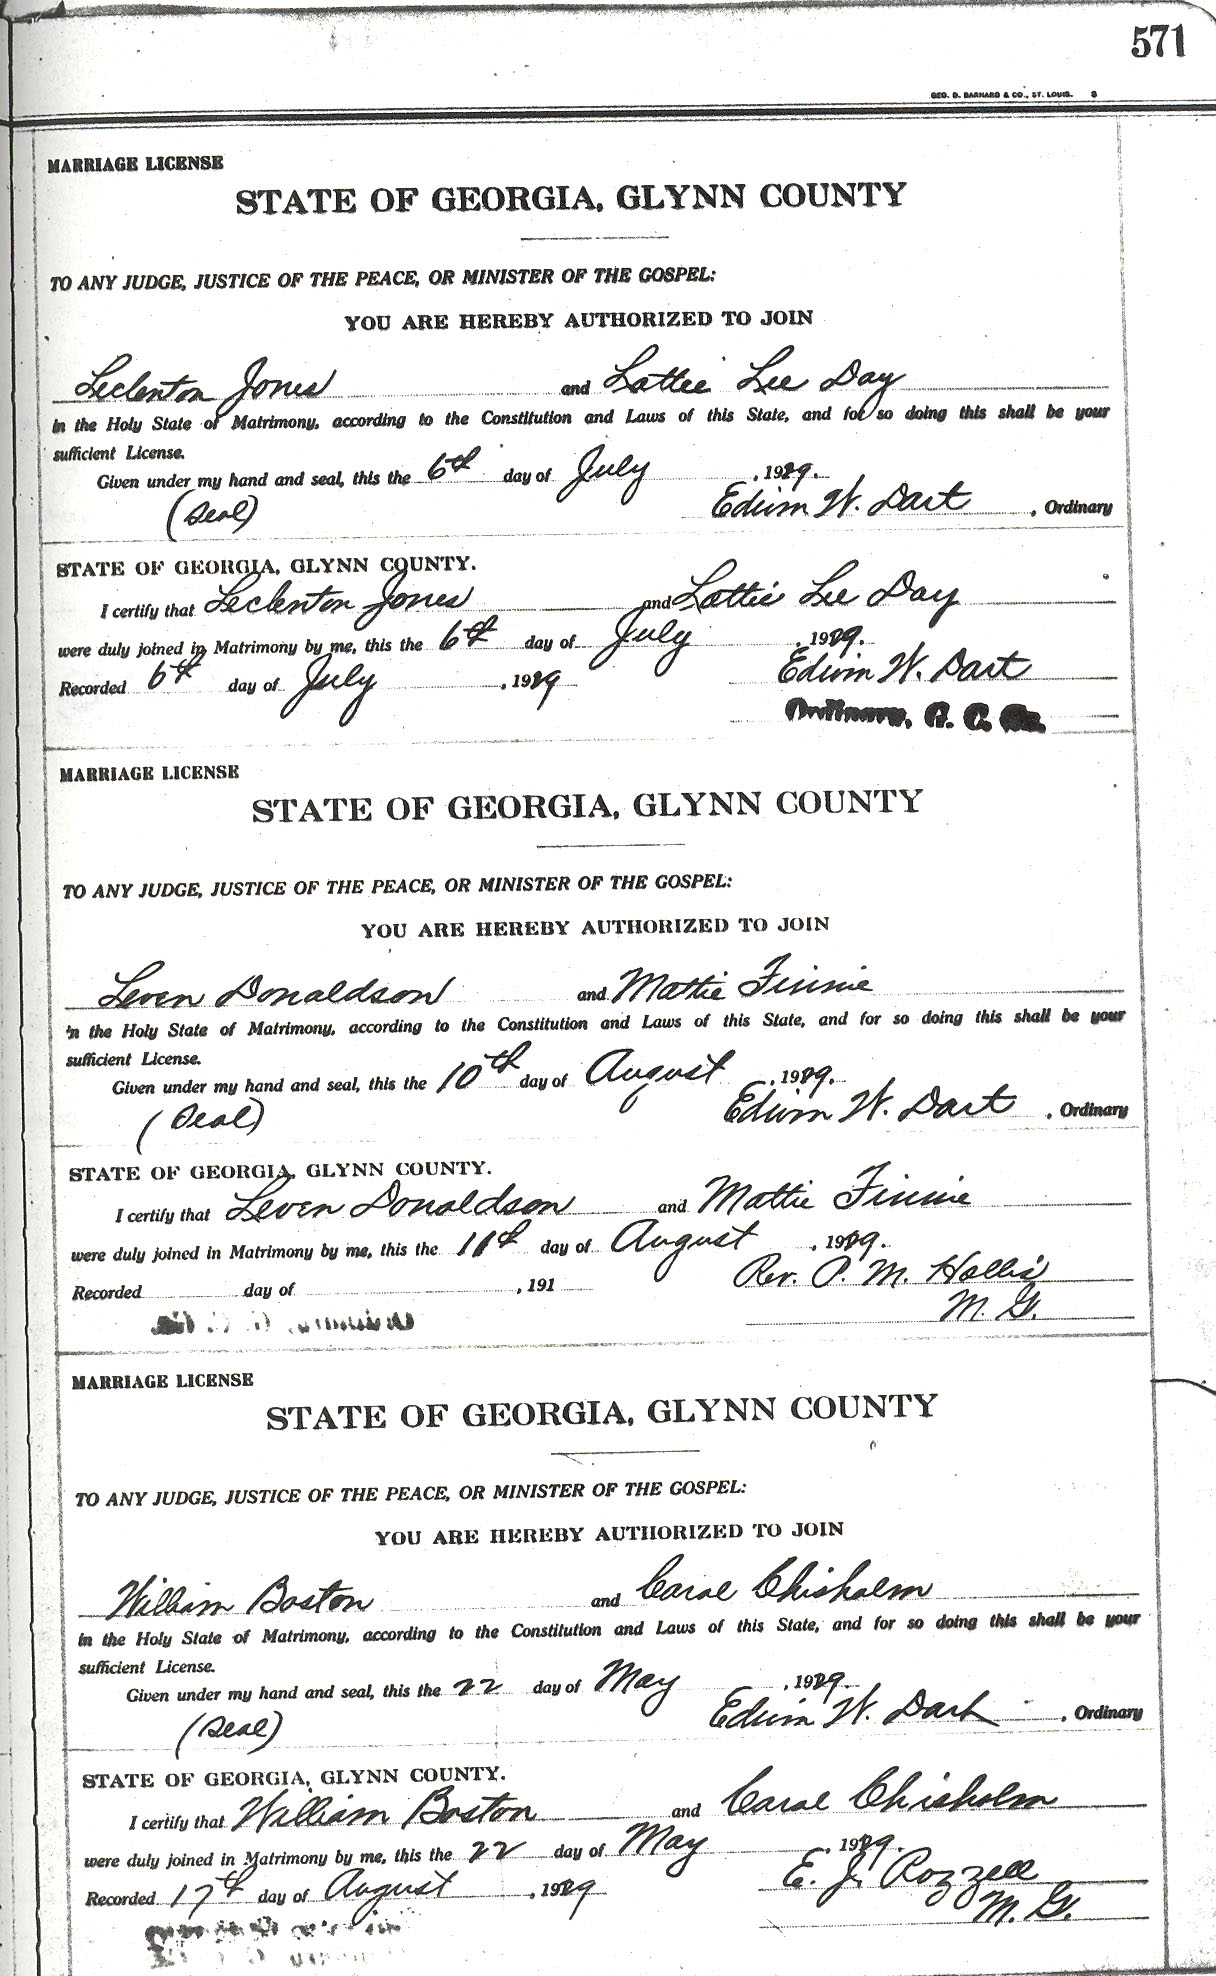 571
GEO. D. BARNARD & CO., ST. LOUIS. 8
MARRIAGE LICENSE
STATE OF GEORGIA, GLYNN COUNTY
TO ANY JUDGE, JUSTICE OF THE PEACE, OR MINISTER OF THE GOSPEL:
YOU ARE HEREBY AUTHORIZED TO JOIN
Leclenton Jones and Lattie Lee Day
in the Holy State of Matrimony, according to the Constitution and Laws of this State, and for so doing this shall be your
sufficient License.
Given under my hand and seal, this the 6th day of July, 1929.
(Seal) Edwin W. Dart, Ordinary
STATE OF GEORGIA, GLYNN COUNTY.
I certify that Leclenton Jones and Lattie Lee Day
were duly joined in Matrimony by me, this the 6th day of July, 1929.
Recorded 6th day of July, 1929 Edwin W. Dart
Ordinary, G. C. Ga.
MARRIAGE LICENSE
STATE OF GEORGIA, GLYNN COUNTY
TO ANY JUDGE, JUSTICE OF THE PEACE, OR MINISTER OF THE GOSPEL:
YOU ARE HEREBY AUTHORIZED TO JOIN
Leven Donaldson and Mattie Finnie
in the Holy State of Matrimony, according to the Constitution and Laws of this State, and for so doing this shall be your
sufficient License.
Given under my hand and seal, this the 10th day of August, 1929.
(Seal) Edwin W. Dart, Ordinary
STATE OF GEORGIA, GLYNN COUNTY.
I certify that Leven Donaldson and Mattie Finnie
were duly joined in Matrimony by me, this the 11th day of August, 1929.
Rev. P. M. Hollis
Recorded day of , 191
M. G.
MARRIAGE LICENSE
STATE OF GEORGIA, GLYNN COUNTY
TO ANY JUDGE, JUSTICE OF THE PEACE, OR MINISTER OF THE GOSPEL:
YOU ARE HEREBY AUTHORIZED TO JOIN
William Boston and Carol Chisholm
in the Holy State of Matrimony, according to the Constitution and Laws of this State, and for so doing this shall be your
sufficient License.
Given under my hand and seal, this the 22 day of May, 1929.
(Seal) Edwin W. Dart, Ordinary
STATE OF GEORGIA, GLYNN COUNTY.
I certify that William Boston and Carol Chisholm
were duly joined in Matrimony by me, this the 22 day of May, 1929.
Recorded 17th day of August, 1929 E. J. Rozzell
M. G.